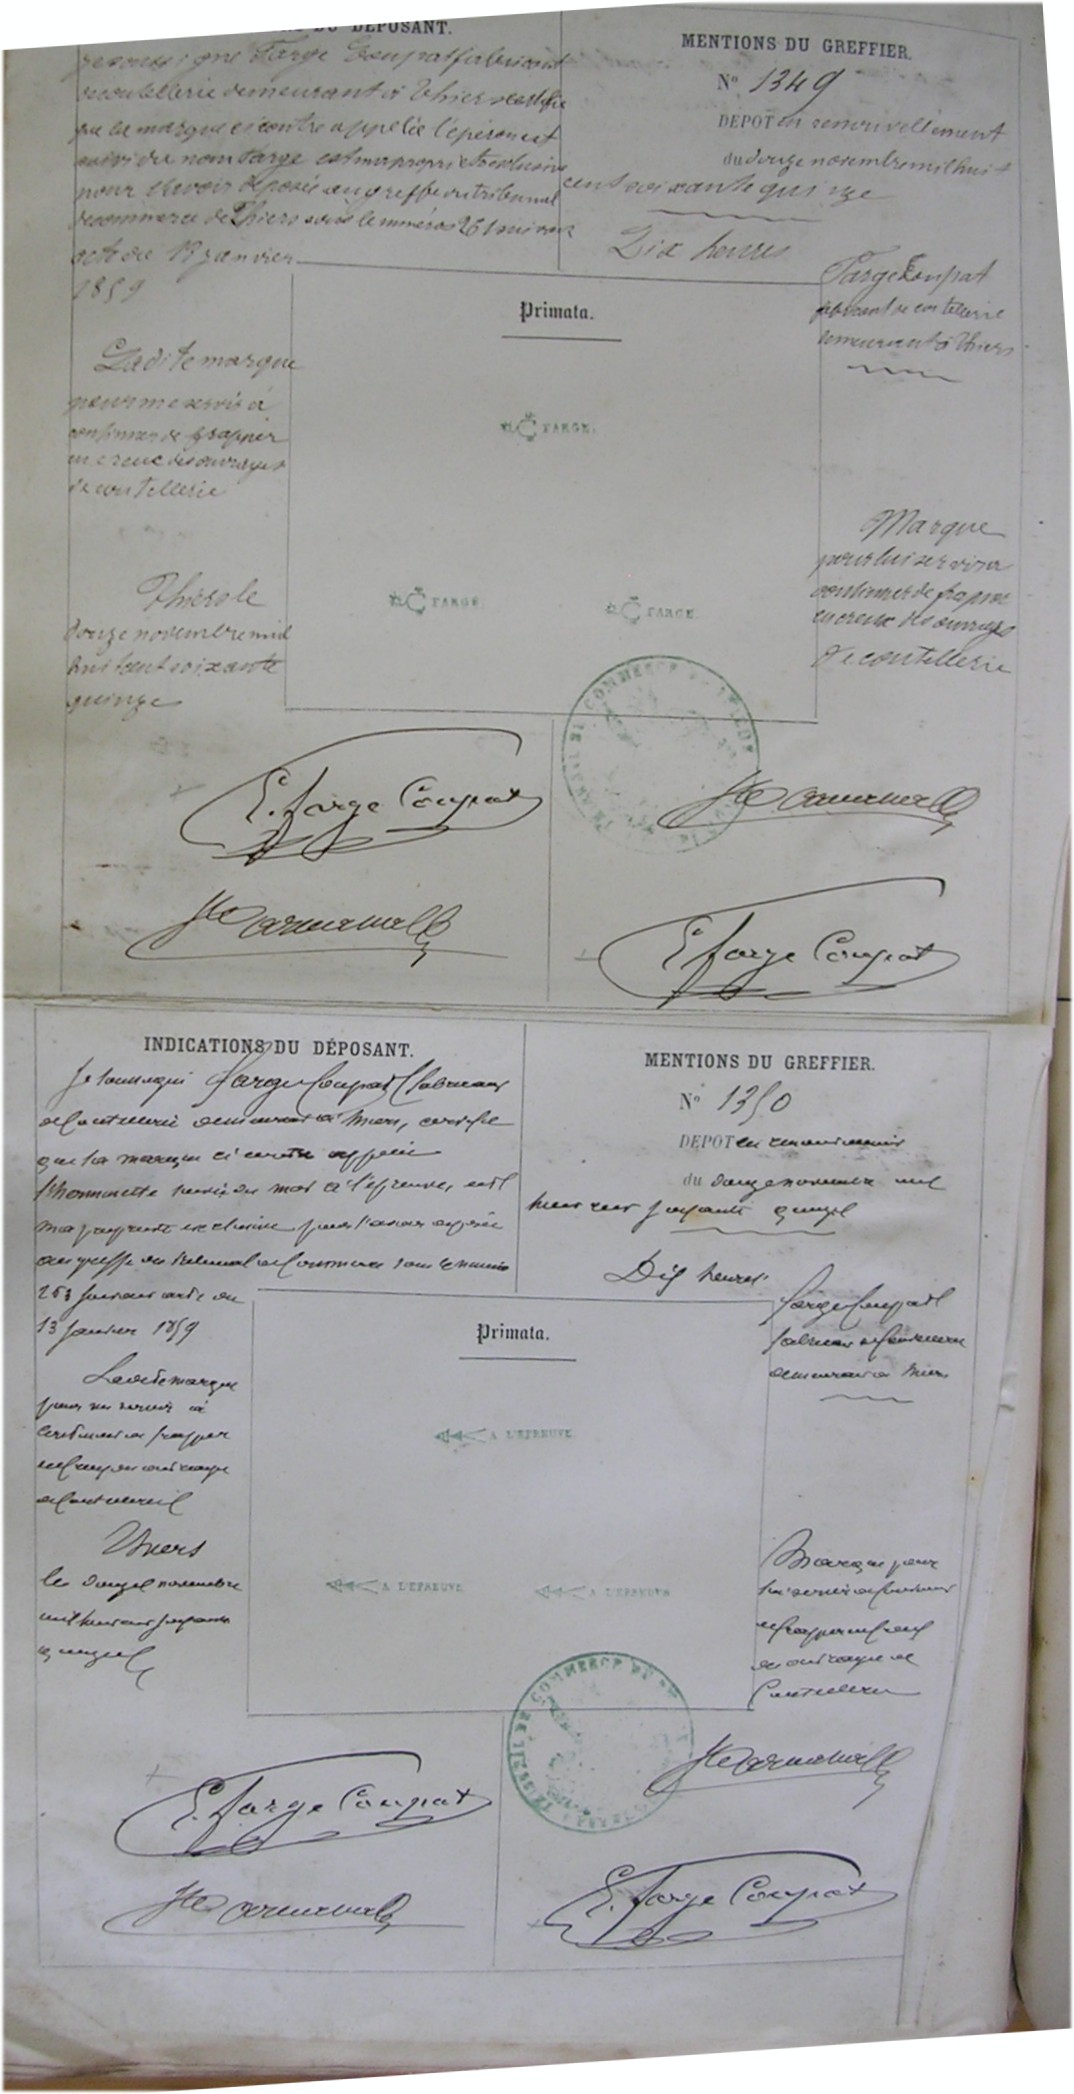 DU DÉPOSANT.
soussigné Farge Coupat fabricant
de coutellerie demeurant à Thiers certifie
que la marque ci contre appelée l'éperon est
suivi du nom Farge est ma propriété exclusive
pour l'avoir déposée au greffe du tribunal
de commerce de Thiers sous le numéro 261 suivant
acte du 13 janvier
1859
Ladite marque
pour me servir à
continuer de frapper
en creux des ouvrages
de coutellerie
Thiers le
douze novembre mil
huit cent soixante
quinze
MENTIONS DU GREFFIER.
N° 1349
DÉPOT en renouvellement
du douze novembre mil huit
cent soixante quinze
Dix heures
Farge Coupat
fabricant de coutellerie
demeurant à Thiers
Primata.
FARGE
FARGE
FARGE
Marque
pour lui servir à
continuer de frapper
en creux des ouvrages
de coutellerie
COMMERCE
E. Farge Coupat
E. Farge Coupat
INDICATIONS DU DÉPOSANT.
Je soussigné Farge Coupat fabricant
de coutellerie demeurant à Thiers, certifie
que la marque ci contre appelée
suivie du mot à l'épreuve, est
ma propriété exclusive pour l'avoir déposée
au greffe du tribunal de Commerce sous le numéro
263 suivant acte du
13 Janvier 1859
Ladite marque
pour me servir à
continuer de frapper
en creux des ouvrages
de Coutellerie
Thiers
le douze novembre
mil huit cent soixante
quinze
MENTIONS DU GREFFIER.
N° 1350
DÉPOT en renouvellement
du douze novembre mil
huit cent soixante quinze
Dix heures
Farge Coupat
fabricant de Coutellerie
demeurant à Thiers
Primata.
A L'EPREUVE
A L'EPREUVE
A L'EPREUVE
Marque pour
lui servir à continuer
de frapper en creux
des ouvrages de
Coutellerie
COMMERCE
E. Farge Coupat
E. Farge Coupat